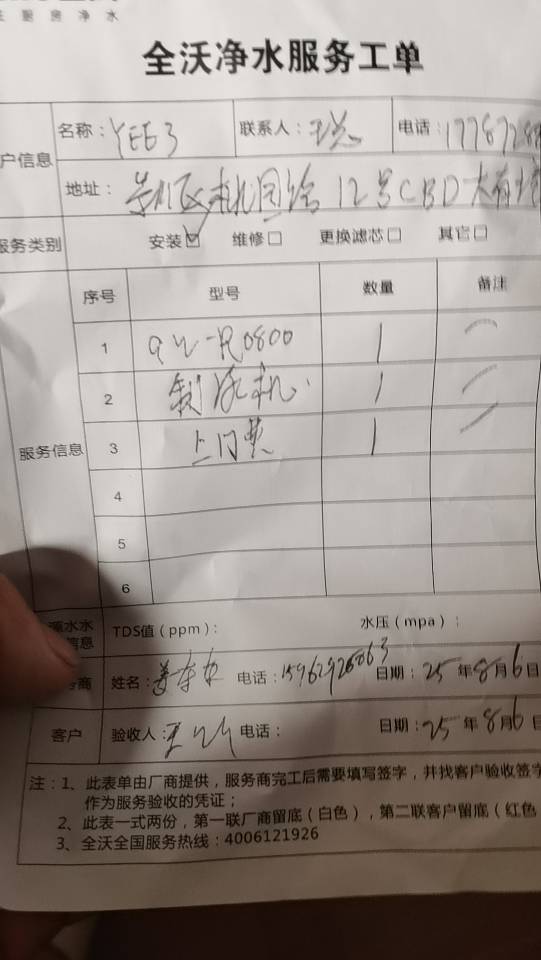 厨房净水
全沃净水服务工单
户信息
名称：YEE3 联系人：王 电话：1778728
地址：12号CBD大
服务类别 安装☑ 维修□ 更换滤芯□ 其它□
服务信息
序号 型号 数量 备注
1 QW-R0800 1
2 制冰机 1
3 上门费 1
4
5
6
源水水
信息
TDS值（ppm）： 水压（mpa）：
商 姓名：姜 电话：15962926063 日期：25年8月6日
客户 验收人：王 电话： 日期：25年8月6日
注：1、此表单由厂商提供，服务商完工后需要填写签字，并找客户验收签字
作为服务验收的凭证；
2、此表一式两份，第一联厂商留底（白色），第二联客户留底（红色
3、全沃全国服务热线：4006121926